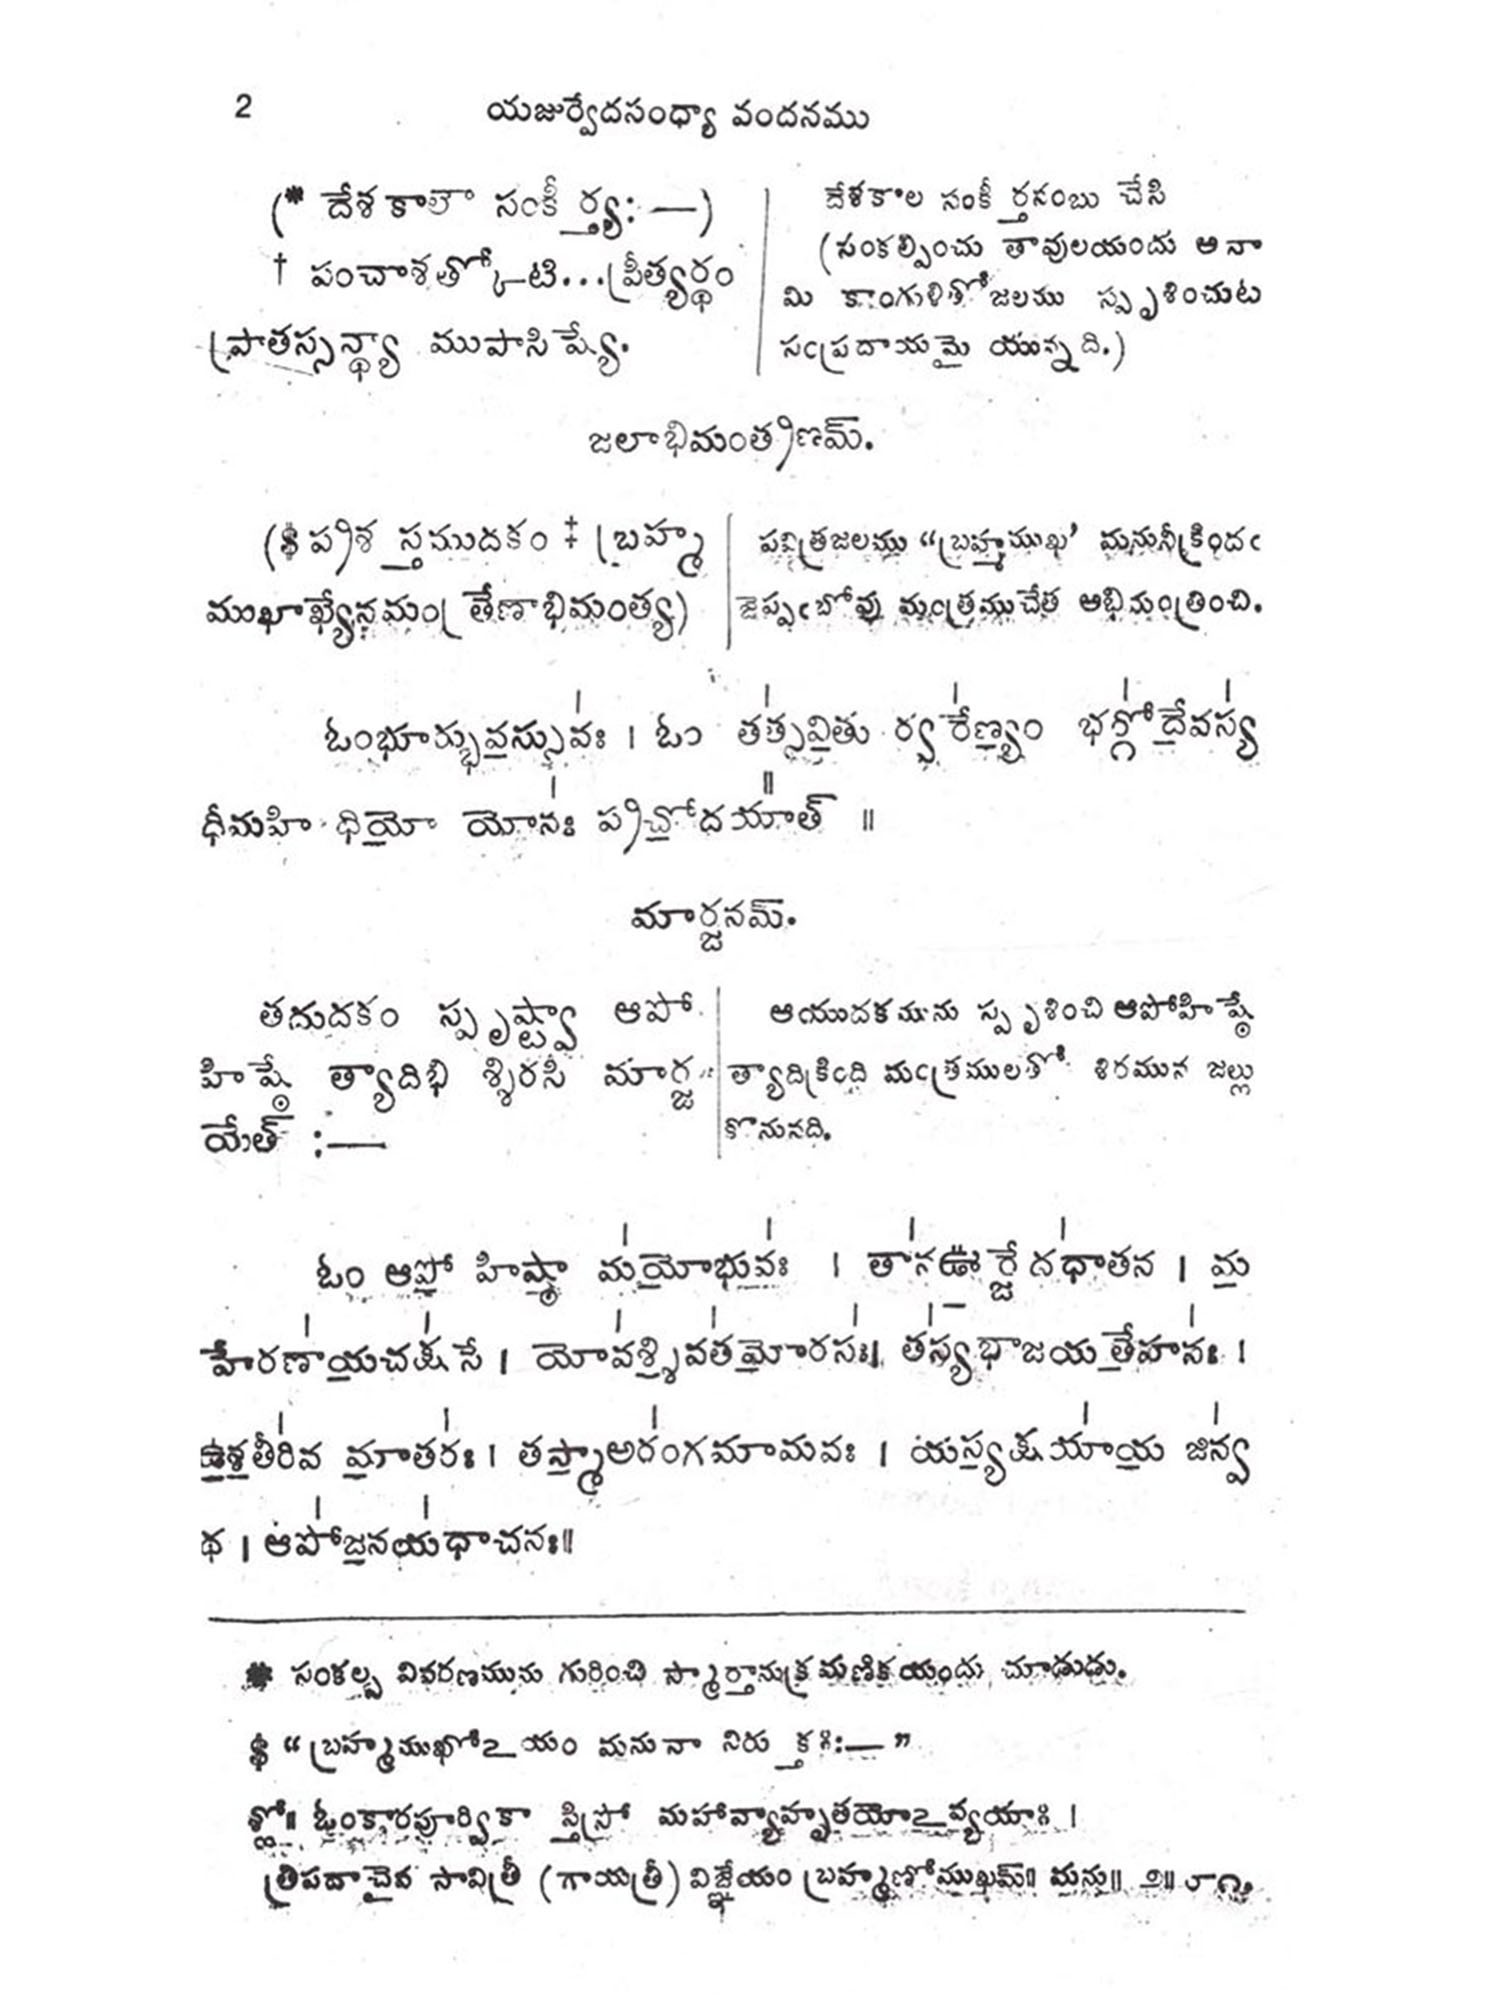 2 యజుర్వేదసంధ్యా వందనము
(* దేశకాలౌ సంకీర్త్య: —)
† పంచాశత్కోటి...ప్రీత్యర్థం
ప్రాతస్సన్ధ్యా ముపాసిష్యే.
దేశకాల సంకీర్తనంబు చేసి
(సంకల్పించు తావులయందు అనా
మి కాంగుళితోజలము స్పృశించుట
సంప్రదాయమై యున్నది.)
జలాభిమంత్రణమ్.
(§ ప్రశస్తముదకం ‡ బ్రహ్మ
ముఖాఖ్యేనమంత్రేణాభిమంత్య)
పవిత్రజలము “బ్రహ్మముఖ’ మనునీక్రిందఁ
జెప్పఁబోవు మంత్రముచేత అభిమంత్రించి.
ఓంభూర్భువ॒స్సువ॑ః । ఓం తత్స॑వి॒తు ర్వరే॑ణ్య॒ం భర్గో॑దే॒వస్య॑
ధీమహి ధియో॒ యోన॑ః ప్రచో॒దయా᳚త్ ॥
మార్జనమ్.
తదుదకం స్పృష్ట్వా ఆపో
హిష్ఠే త్యాదిభి శ్శిరసి మార్జ
యేత్ :—
ఆయుదకమును స్పృశించి ఆపోహిష్ఠే
త్యాదిక్రింది మంత్రములతో శిరమున జల్లు
కొనునది.
ఓం ఆపో॒ హిష్ఠా మ॑యో॒భువ॑ః । తాన॑ఊ॒ర్జేదధా॑తన । మ॒
హేరణా॑య॒చక్ష॑సే । యోవ॑శ్శి॒వత॑మో॒రస॑ః॥ తస్య॑భాజయతే॒హన॑ః ।
ఉ॒శ॒తీరి॑వ మా॒తర॑ః । తస్మా॒అర॑ంగమామవః । యస్య॒క్షయా॑య॒ జిన్వ॑
థ । ఆపో॑జ॒నయ॑ధాచనః॥
* సంకల్ప వివరణమును గురించి స్మార్తానుక్రమణికయందు చూడుడు.
§ “బ్రహ్మముఖోఽయం మనునా నిరుక్తః:—”
శ్లో॥ ఓంకారపూర్వికా స్తిస్రో మహావ్యాహృతయోఽవ్యయాః ।
త్రిపదాచైవ సావిత్రీ (గాయత్రీ) విజ్ఞేయం బ్రహ్మణోముఖమ్॥ మను॥ ౨॥ ౮౧.